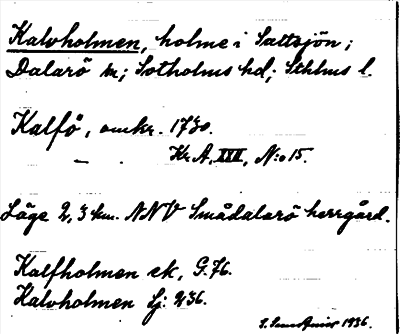 Kalvholmen, holme i Saltsjön;
Dalarö sn; Sotholms hd; Sthlms l.
Kalfö, omkr. 1730.
Kr A, XXX, N:o 15.
Läge 2,3 km. NNV Smådalarö herrgård.
Kalfholmen ek, G.76.
Kalvholmen Sj: 236.
1936.